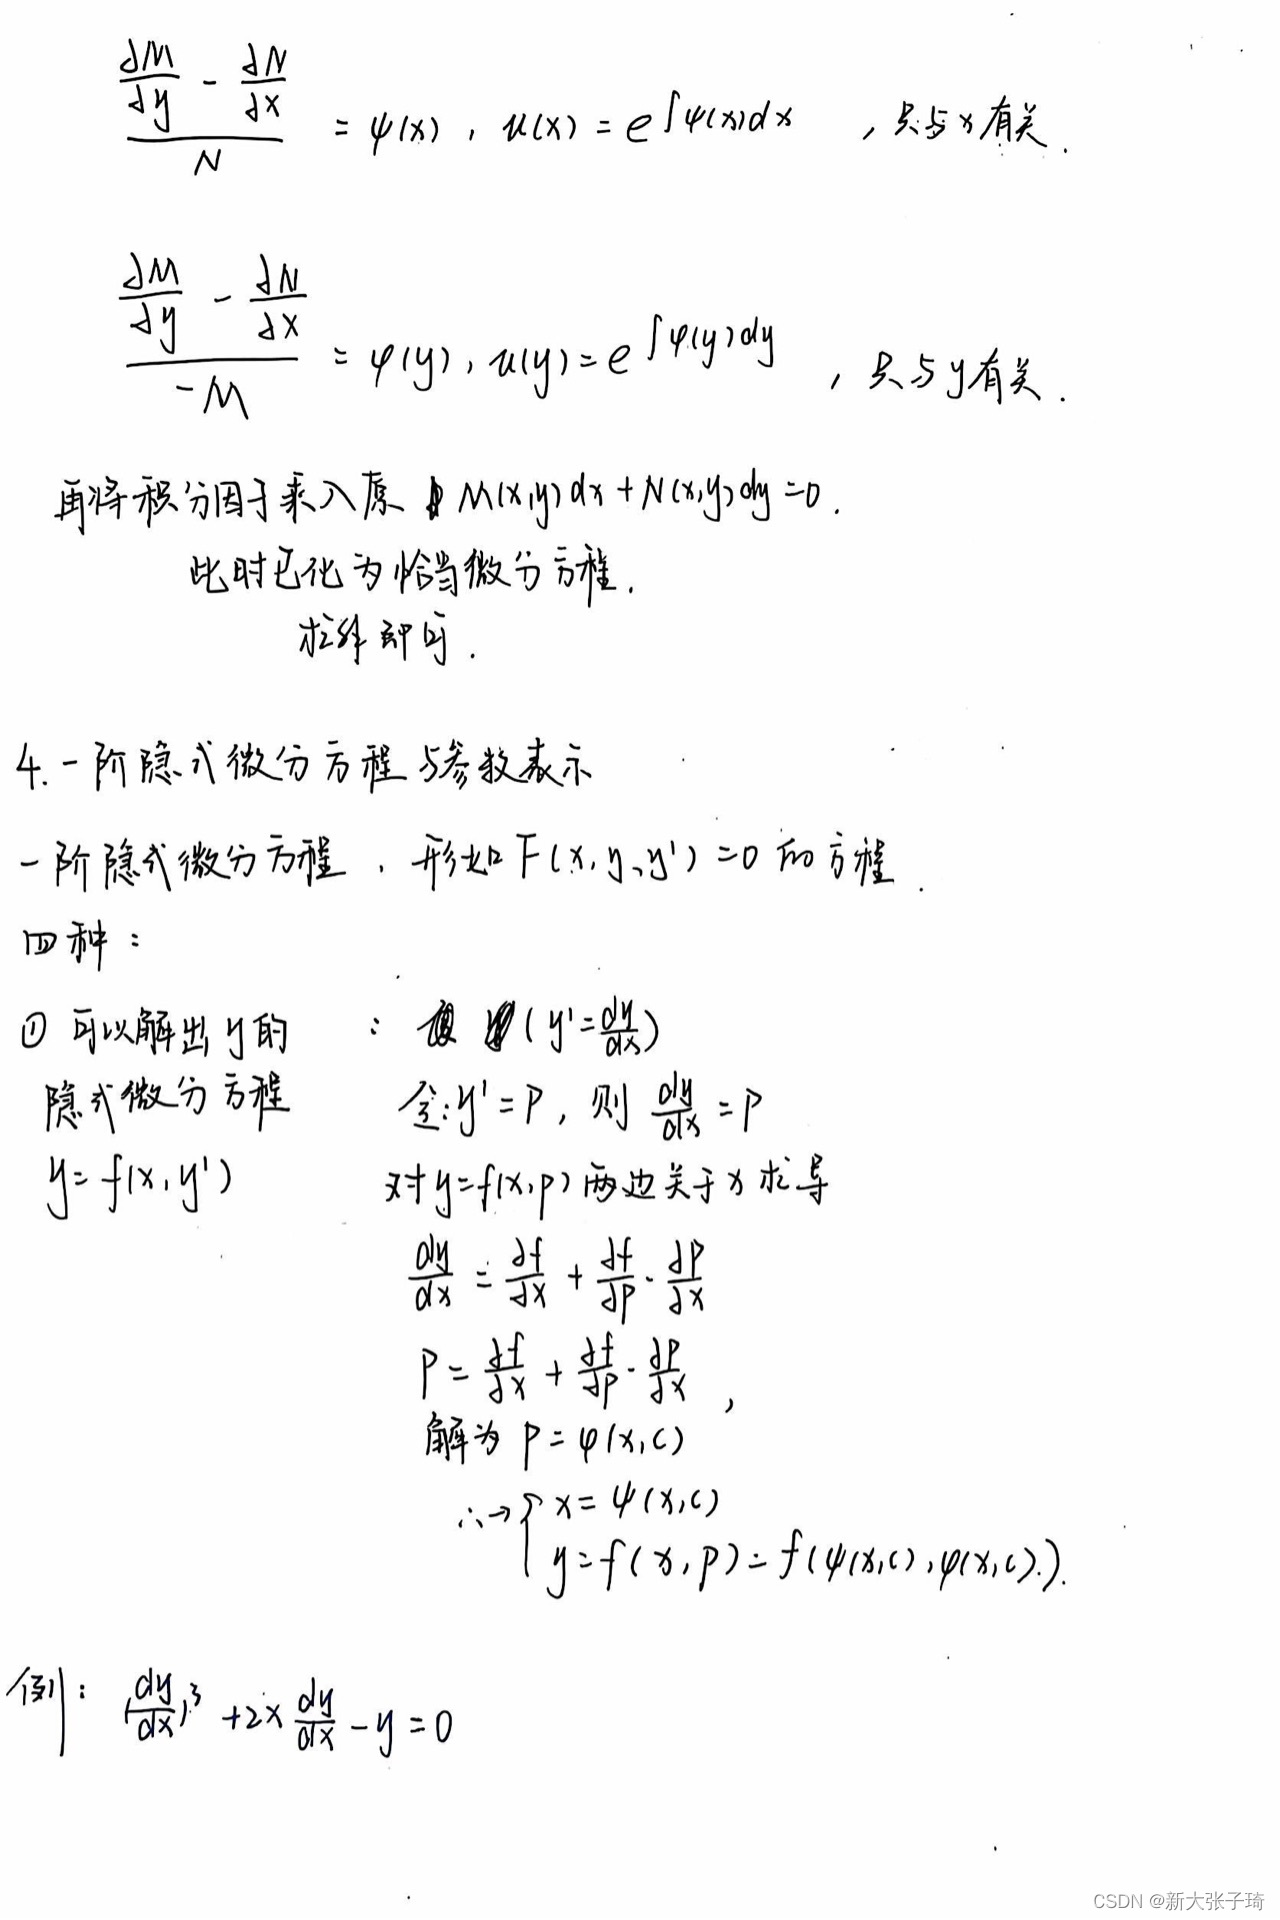 ∂M/∂y - ∂N/∂x / N = ψ(x), u(x) = e^∫ψ(x)dx ,只与x有关.
∂M/∂y - ∂N/∂x / -M = φ(y), u(y) = e^∫φ(y)dy ,只与y有关.
再将积分因子乘入原 M(x,y)dx+N(x,y)dy=0.
此时已化为恰当微分方程.
求解即可.
4.一阶隐式微分方程与参数表示
一阶隐式微分方程,形如F(x,y,y')=0的方程.
四种:
① 可以解出y的
隐式微分方程
y=f(x,y')
: (y'=dy/dx)
令:y'=P, 则 dy/dx=P
对y=f(x,p)两边关于x求导
dy/dx = ∂f/∂x + ∂f/∂p · ∂p/∂x
P = ∂f/∂x + ∂f/∂p · ∂p/∂x ,
解为 P=φ(x,c)
∴→{ x=ψ(x,c)
y=f(x,p)=f(ψ(x,c),φ(x,c)).
例: (dy/dx)³ +2x dy/dx -y=0
CSDN @新大张子琦